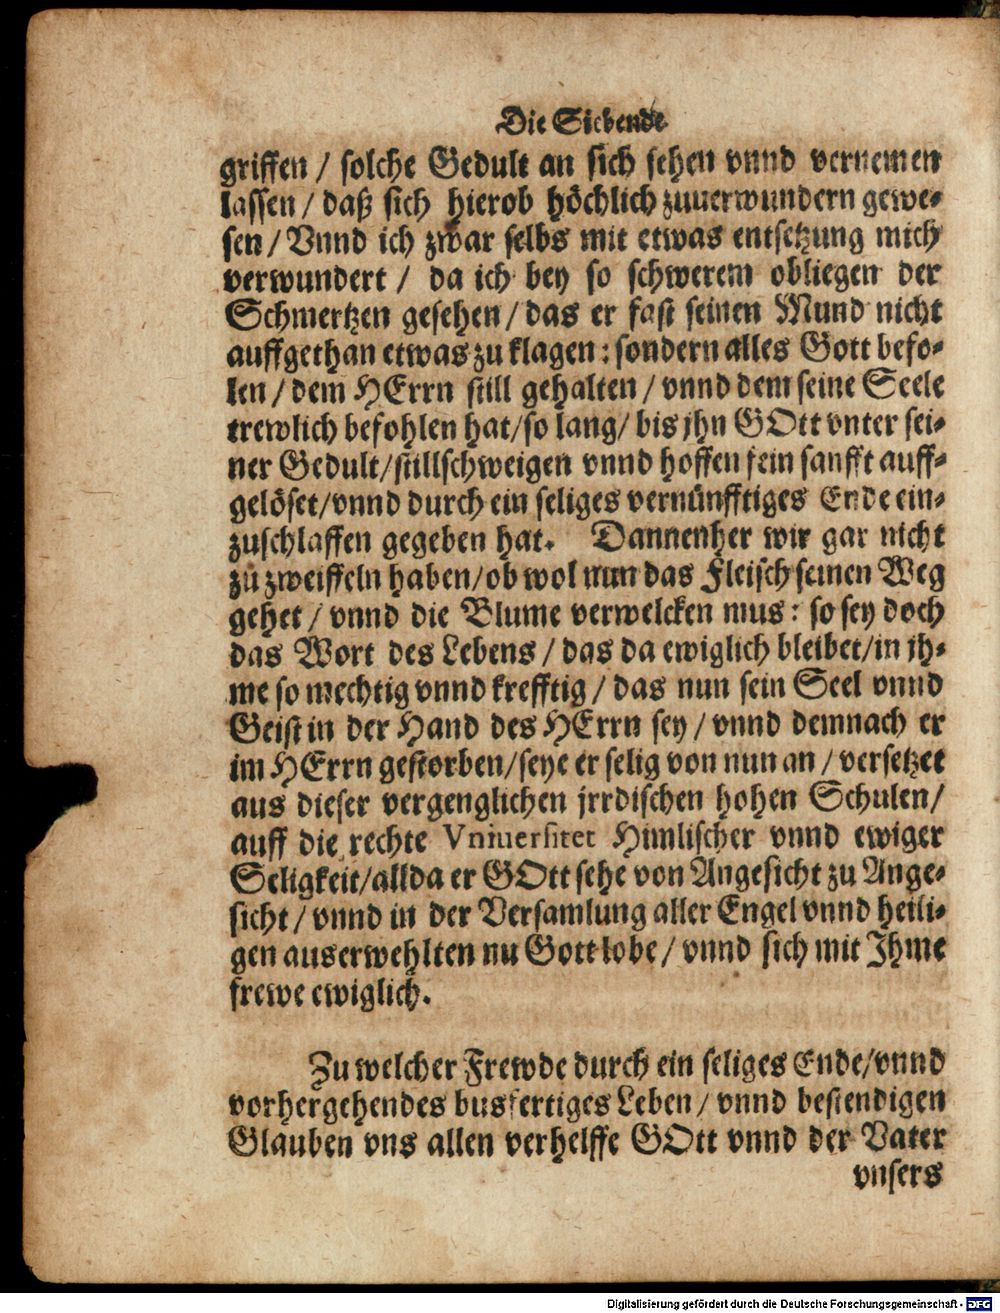 Die Siebende
griffen / solche Gedult an sich sehen vnnd vernemen
lassen / daß sich hierob höchlich zuuerwundern gewe-
sen / Vnnd ich zwar selbs mit etwas entsetzung mich
verwundert / da ich bey so schwerem obliegen der
Schmertzen gesehen / das er fast seinen Mund nicht
auffgethan etwas zu klagen: sondern alles Gott befo-
len / dem HErrn still gehalten / vnnd dem seine Seele
trewlich befohlen hat/so lang/ bis jhn GOtt vnter sei-
ner Gedult/stillschweigen vnnd hoffen fein sanfft auff-
gelöset/vnnd durch ein seliges vernünfftiges Ende ein-
zuschlaffen gegeben hat. Dannenher wir gar nicht
zu zweiffeln haben/ob wol nun das Fleisch seinen Weg
gehet / vnnd die Blume verwelcken mus: so sey doch
das Wort des Lebens / das da ewiglich bleibet/in jh-
me so mechtig vnnd krefftig / das nun sein Seel vnnd
Geist in der Hand des HErrn sey / vnnd demnach er
im HErrn gestorben/seye er selig von nun an / versetzet
aus dieser vergenglichen jrrdischen hohen Schulen/
auff die rechte Vniuersitet Himlischer vnnd ewiger
Seligkeit/allda er GOtt sehe von Angesicht zu Ange-
sicht / vnnd in der Versamlung aller Engel vnnd heili-
gen auserwehlten nu Gott lobe / vnnd sich mit Jhme
frewe ewiglich.
Zu welcher Frewde durch ein seliges Ende/vnnd
vorhergehendes busfertiges Leben / vnnd bestendigen
Glauben vns allen verhelffe GOtt vnnd der Vater
vnsers
Digitalisierung gefördert durch die Deutsche Forschungsgemeinschaft - DFG